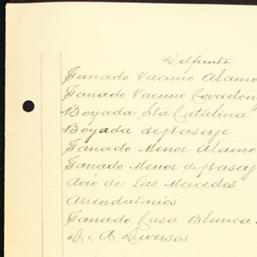 Del frente
Ganado Vacuno Alamo
Ganado Vacuno Covadon
Boyada Sta Catalina
Boyada de Pasaje
Ganado Menor Alamo
Ganado Menor de Pasaj
Avio de Las Mercedes
Arrendatarios
Ganado Casa Blanca
D. A Diversos